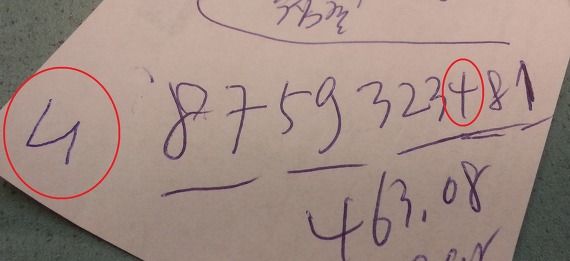 4 87 59 323481
463.08